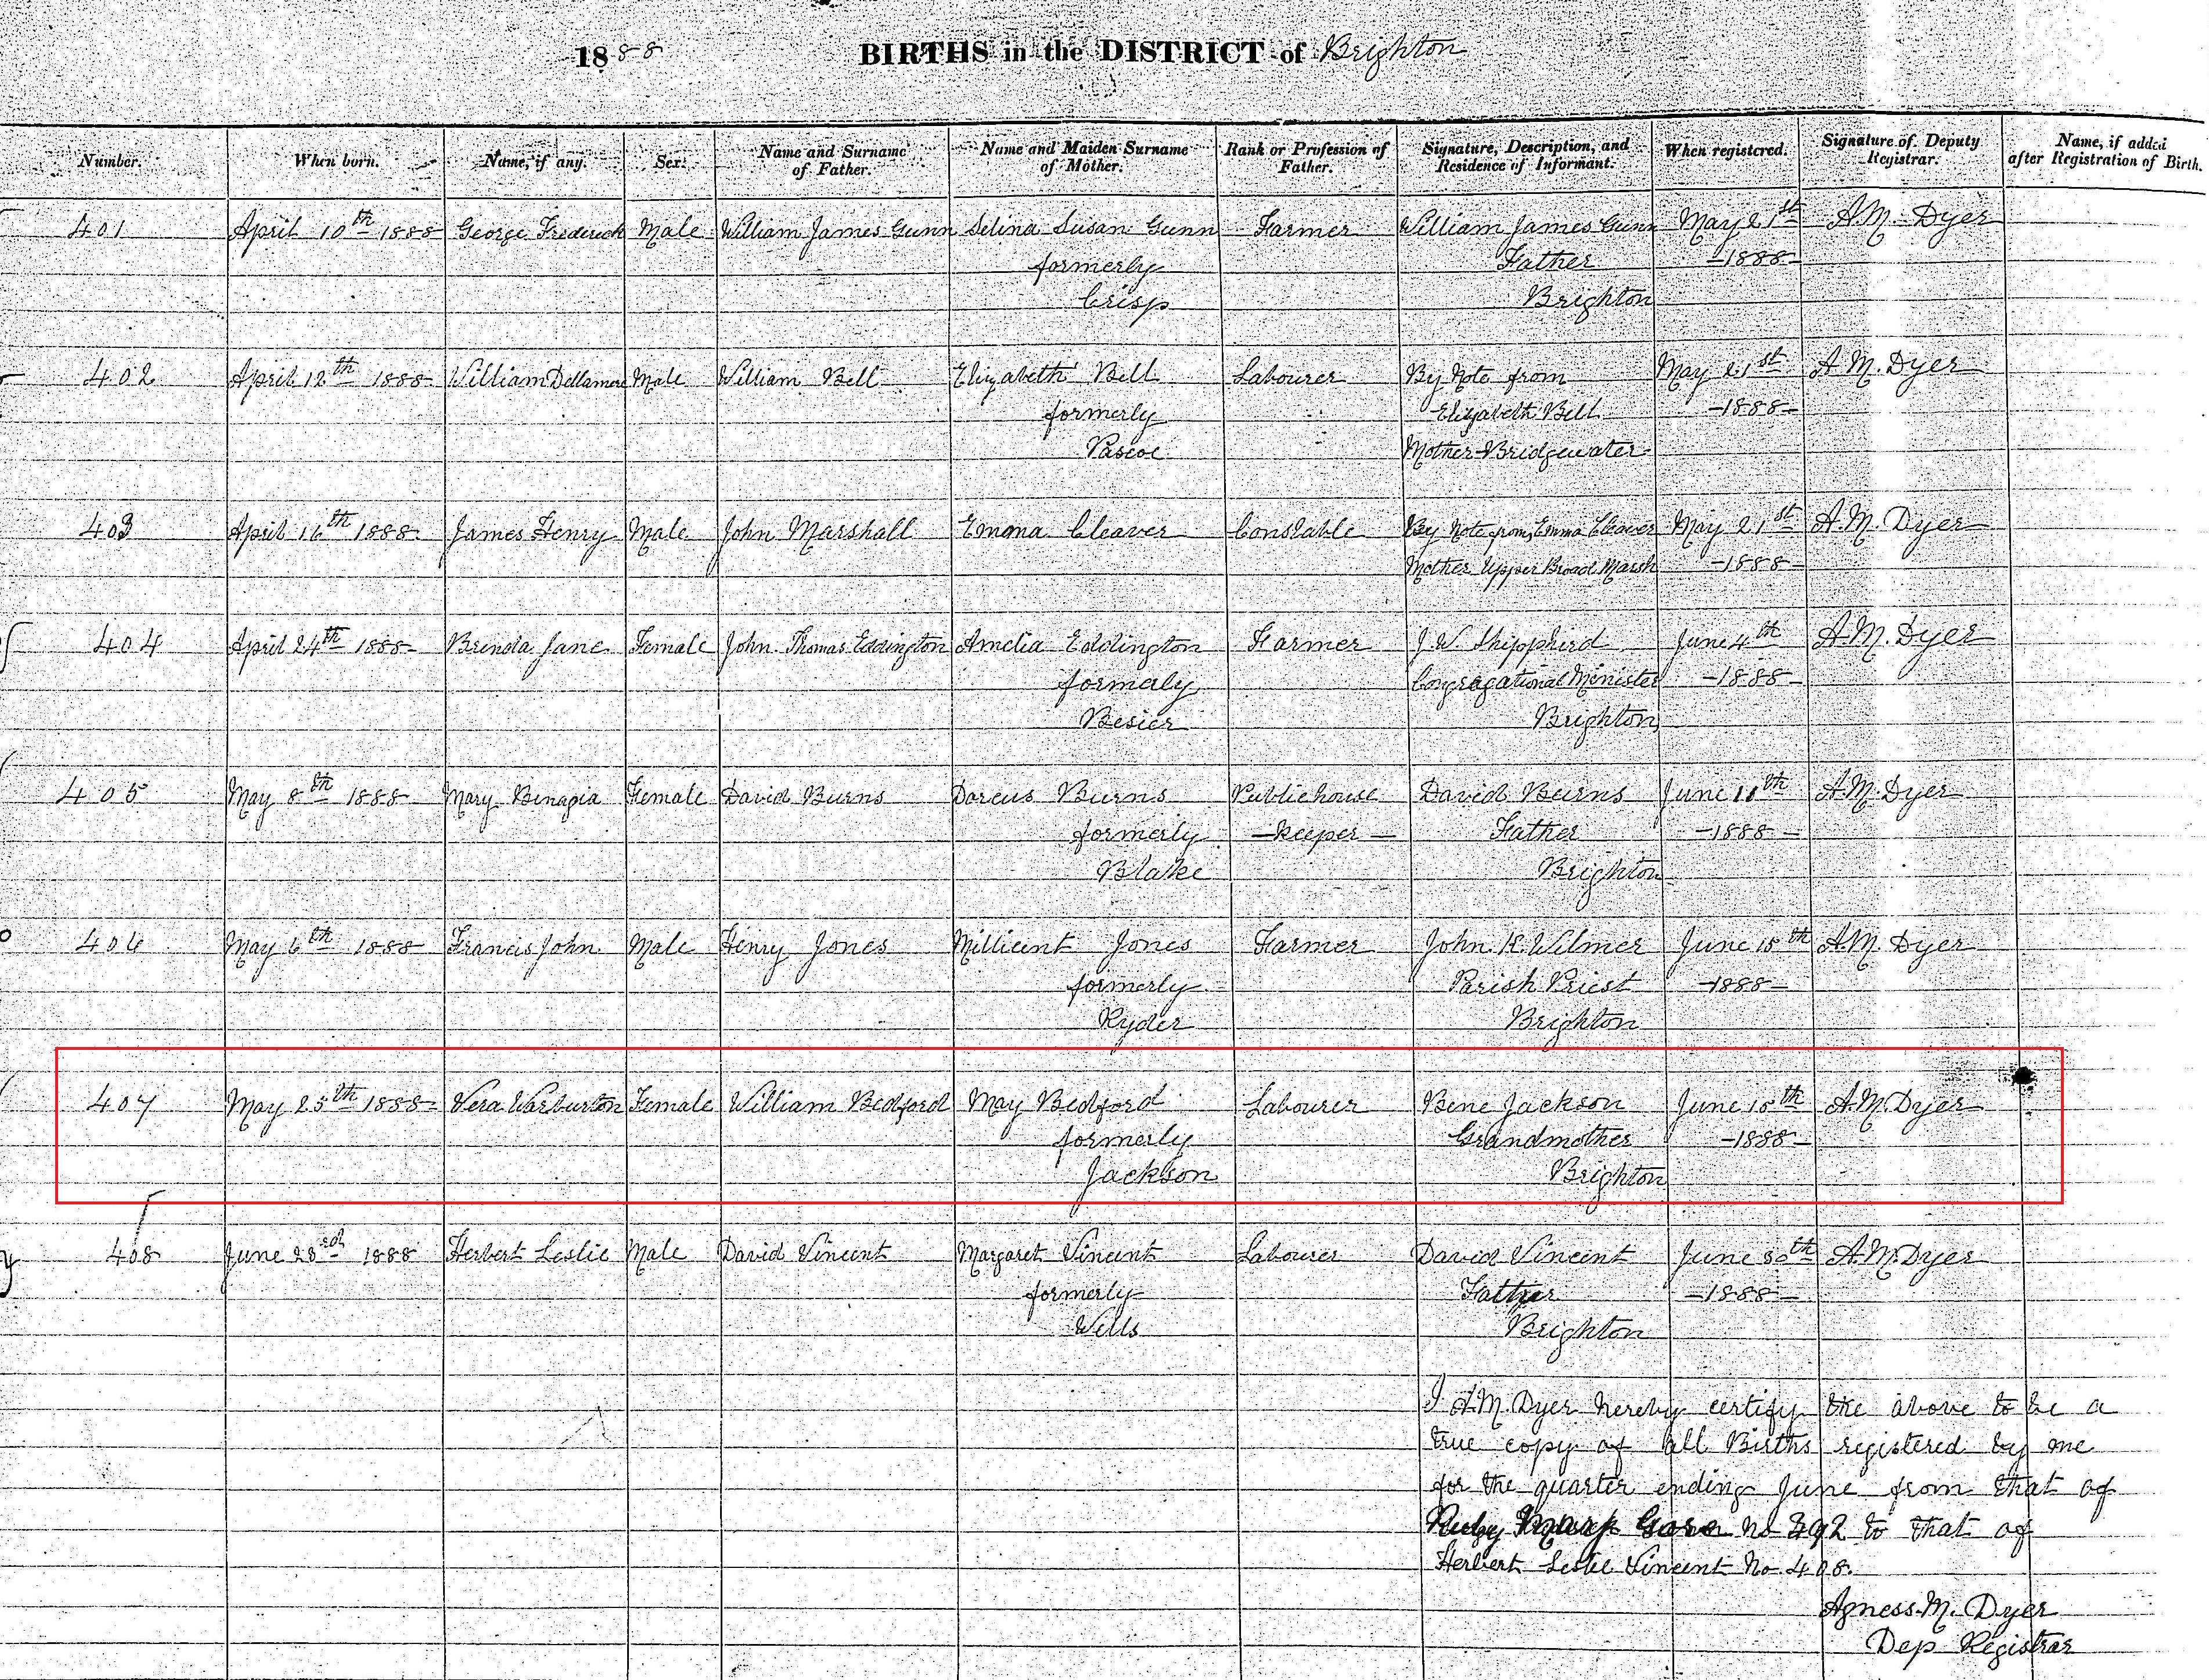 1888 BIRTHS in the DISTRICT of Brighton
Number. When born. Name, if any. Sex. Name and Surname of Father. Name and Maiden Surname of Mother. Rank or Profession of Father. Signature, Description, and Residence of Informant. When registered. Signature of Deputy Registrar. Name, if added after Registration of Birth.
401 April 10th 1888 George Frederick Male William James Gunn Selina Susan Gunn Farmer William James Gunn May 21st A.M. Dyer
formerly Father -1888-
Crisp Brighton
402 April 12th 1888 William Dellamere Male William Bell Elizabeth Bell Labourer By Note from May 21st A.M. Dyer
formerly Elizabeth Bell -1888-
Pascoe Mother Bridgewater
403 April 16th 1888 James Henry Male John Marshall Emma Cleaver Constable By Note from Emma Cleaver May 21st A.M. Dyer
Mother Upper Broad Marsh -1888-
404 April 24th 1888 Brenda Jane Female John Thomas Eddington Amelia Eddington Farmer J.W. Shippherd June 4th A.M. Dyer
formerly Congregational Minister -1888-
Besier Brighton
405 May 8th 1888 Mary Female David Burns Dorcus Burns Publichouse David Burns June A.M. Dyer
formerly -keeper- Father -1888-
Blake Brighton
406 May 6th 1888 Francis John Male Henry Jones Millicent Jones Farmer John K. Wilmer June 15th A.M. Dyer
formerly Parish Priest -1888-
Ryder Brighton
407 May 25th 1888 Vera Warburton Female William Bedford May Bedford Labourer Bene Jackson June 18th A.M. Dyer
formerly Grandmother -1888-
Jackson Brighton
408 June 23rd 1888 Herbert Leslie Male David Vincent Margaret Vincent Labourer David Vincent June 30th A.M. Dyer
formerly Father -1888-
Wells Brighton
I A.M. Dyer hereby certify the above to be a
true copy of all Births registered by me
for the quarter ending June from that of
Ruby Gore No 392 to that of
Herbert Leslie Vincent No. 408.
Agness. M. Dyer
Dep Registrar